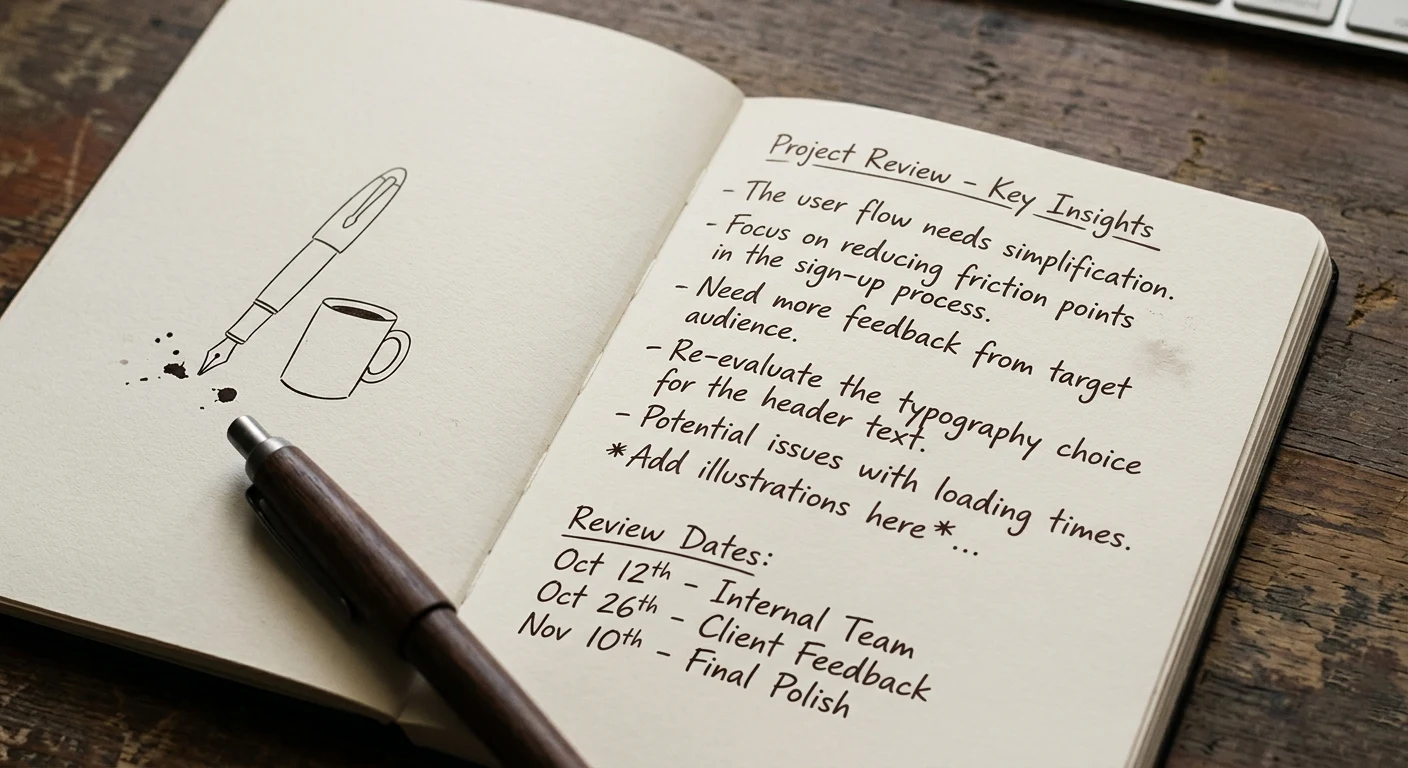 Project Review - Key Insights
- The user flow needs simplification.
- Focus on reducing friction points
in the sign-up process.
- Need more feedback from target
audience.
- Re-evaluate the typography choice
for the header text.
- Potential issues with loading times.
*Add illustrations here*...
Review Dates:
Oct 12th - Internal Team
Oct 26th - Client Feedback
Nov 10th - Final Polish